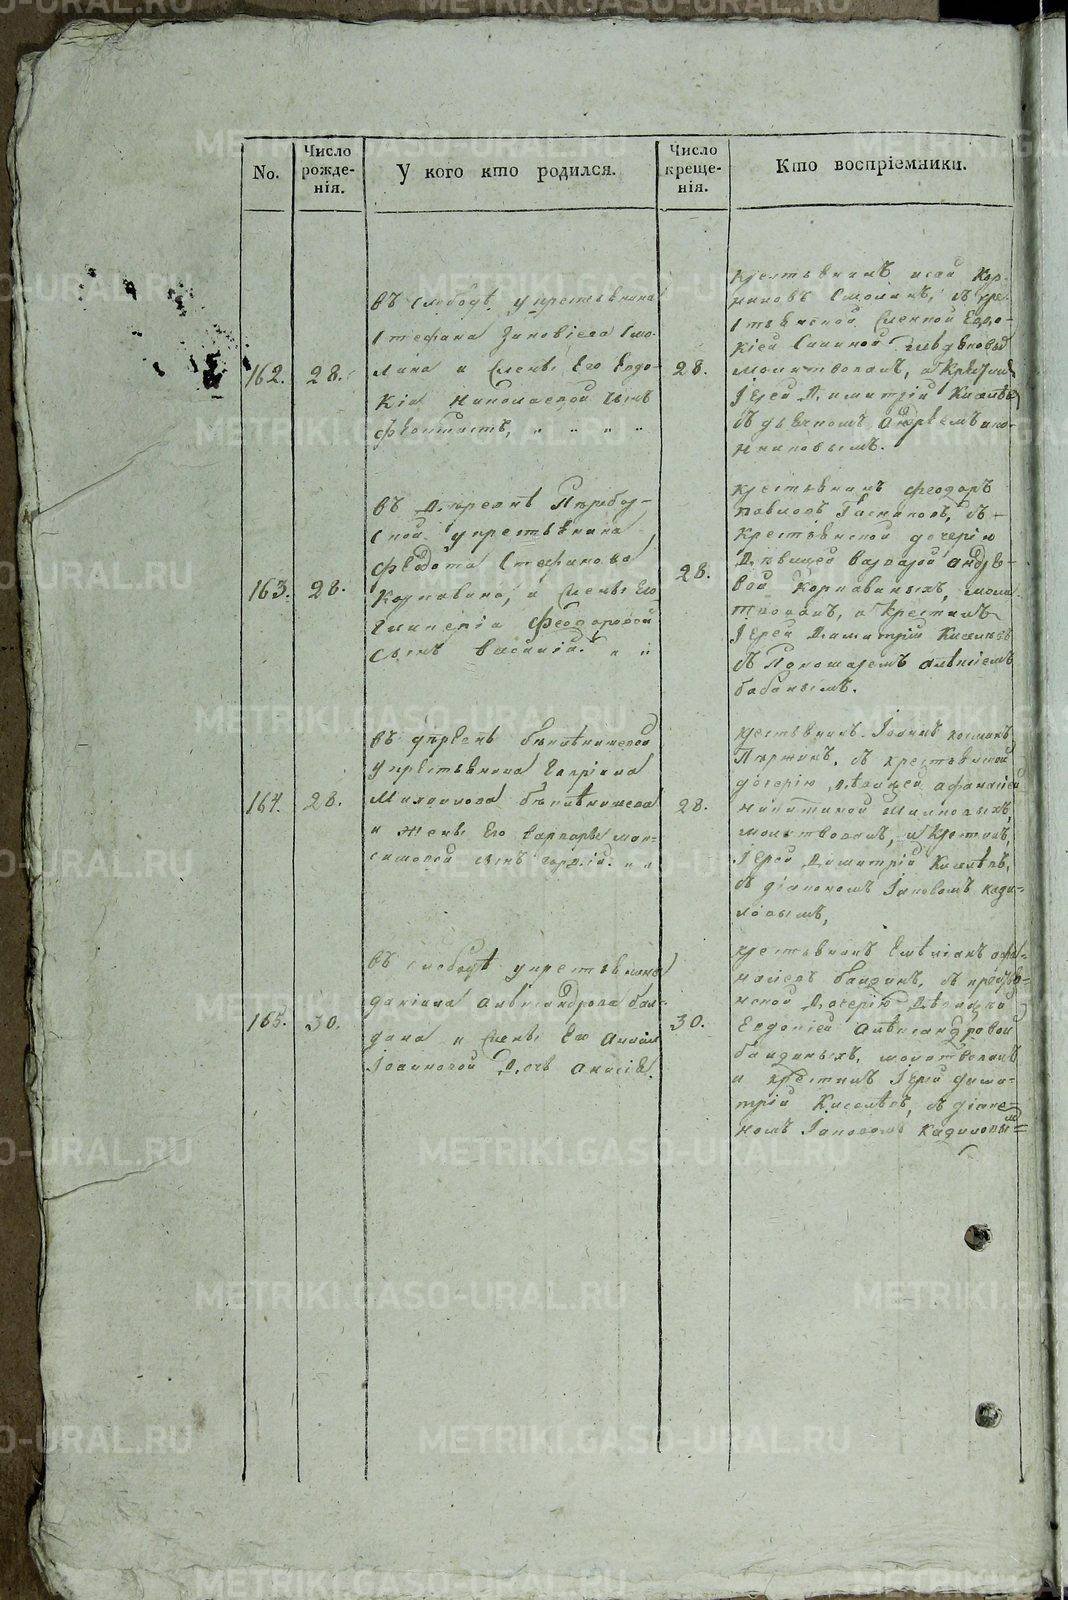 No.
Число рожде-нія.
У кого кто родился.
Число креще-нія.
Кто воспріемники.
162.
28.
въ слободѣ укрестьянина
Стефана Зиновіева Смо-
лина и женѣ Его Евдо-
кіи Николаевой сынъ
Феоктистъ,
28.
крестьянинъ исай Кор-
Смолинъ, съ кре-
стьянской женкой Евдо-
кіей
молитвовалъ, и Крестилъ
Іерей Димитрій Киселевъ
съ дьячкомъ Андреемъ
163.
28.
въ Деревнѣ
укрестьянина
Федота Стефанова
Корнавина, и женѣ Его
Гликеріи Феодоровой
сынъ Василій.
28.
крестьянинъ Феодоръ
Павловъ съ
Крестьянской дочерію
Дѣвицей варварой Андре-
вой Корнавиныхъ, моли
твовалъ, и Крестилъ
Іерей Димитрій Киселевъ
съ Пономаремъ Алексіемъ
бабинымъ.
164.
28.
въ деревнѣ
укрестьянина
Михайлова
и женѣ Его варвары мак-
симовой сынъ
28.
крестьянинъ Іоаннъ
съ крестьянской
дочерію дѣвицей афанасіей
никитиной
молитвовалъ, и Крестилъ,
Іерей Димитрій Киселевъ,
съ діакономъ Іаковомъ кади-
ловымъ,
165.
30.
въ слободѣ укрестьянина
даніила Александрова бал-
дина и женѣ Его Анны
Іоанновой Дочь Анисія.
30.
крестьянинъ Емеліанъ афа-
насіевъ балдинъ, съ кресть-
нской Дочерію Дѣвицей
Евдокіей Александровой
балдиныхъ, молитвовалъ
и крестилъ Іерей дими-
трій Киселевъ, съ діако-
номъ Іаковомъ Кадиловымъ
METRIKI.GASO-URAL.RU